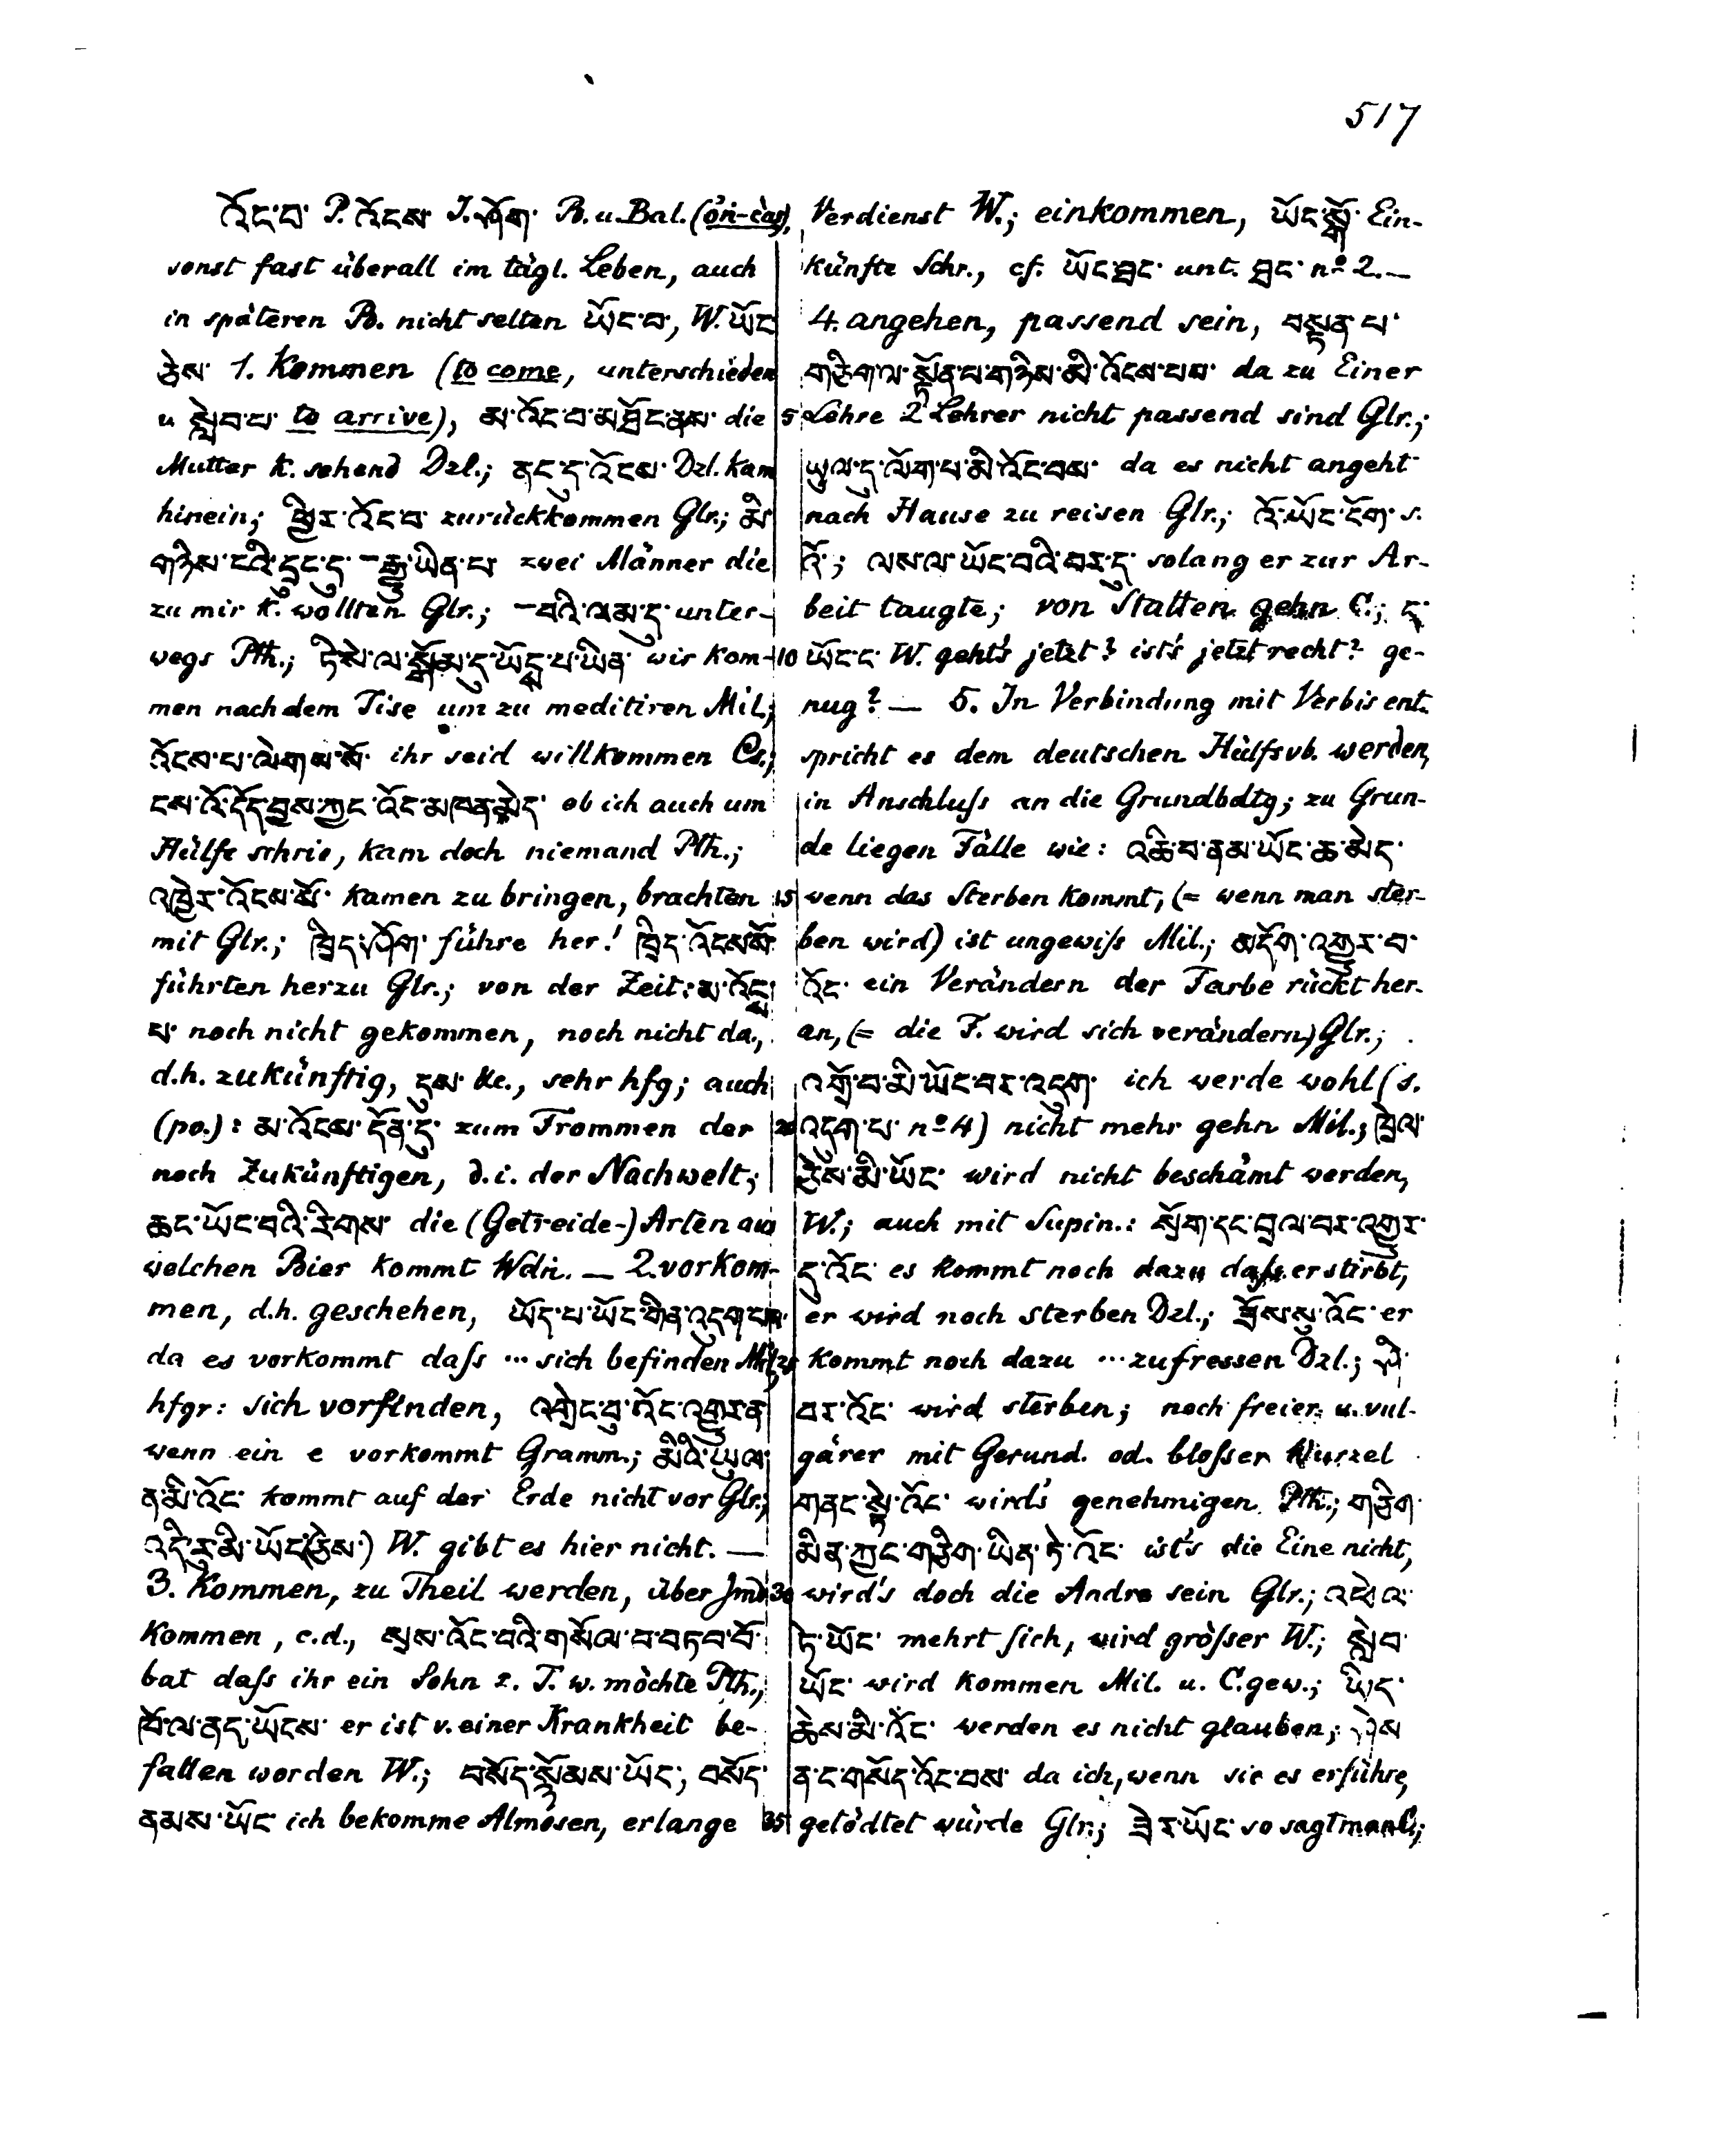 517
འོང་བ་ P. འོངས་ J. ཤོག་ B. u. Bal. (ôn-càs),
sonst fast überall im tägl. Leben, auch
in späteren B. nicht selten ཡོང་བ་, W. ཡོང་
ཅེས་ 1. Kommen (to come, unterschieden
u སླེབ་པ་ to arrive), མ་འོང་བ་མཐོང་ནས་ die
Mutter k. sehend Dzl.; ནང་དུ་འོངས་ Dzl. kam
hinein; ཕྱིར་འོང་བ་ zurückkommen Glr.; མི་
གཉིས་ངའི་དྲུང་དུ་ – རྒྱུ་ཡིན་པ་ zwei Männer die
zu mir k. wollten Glr.; – བའི་ལམ་དུ་ unter-
wegs Pth.; ཏི་སེ་ལ་སྒོམ་དུ་ཡོང་པ་ཡིན་ wir kom-
men nach dem Tise um zu meditiren Mil.;
འོངས་པ་ལེགས་སོ་ ihr seid willkommen Cs.;
ངས་འོ་དོད་བྱས་ཀྱང་འོང་མཁན་མེད་ ob ich auch um
Hülfe schrie, kam doch niemand Pth.;
འཁྱེར་འོངས་སོ་ kamen zu bringen, brachten
mit Glr.; ཁྲིད་ཤོག་ führe her! ཁྲིད་འོངས་སོ་
führten herzu Glr.; von der Zeit: མ་འོངས་
པ་ noch nicht gekommen, noch nicht da,
d.h. zukünftig, དུས་ &c., sehr hfg; auch
(po.): མ་འོངས་དོན་དུ་ zum Frommen der
noch Zukünftigen, d. i. der Nachwelt;
ཆང་ཡོང་བའི་རིགས་ die (Getreide-) Arten aus
welchen Bier kommt Wdń. — 2. vorkom-
men, d.h. geschehen, ཡོད་པ་ཡོང་གིན་འདུག་པས་
da es vorkommt daſs ... sich befinden Mil.;
hfgr: sich vorfinden, འགྲེང་བུ་འོང་འགྱུར་ན་
wenn ein e vorkommt Gramm.; མིའི་ཡུལ་
ན་མི་འོང་ kommt auf der Erde nicht vor Glr.;
འདི་རུ་མི་ཡོང་(ཅེས་) W. gibt es hier nicht. —
3. Kommen, zu Theil werden, über Jmd
kommen, c.d., སྲས་འོང་བའི་གསོལ་བ་བཏབ་བོ་
bat daſs ihr ein Sohn z. T. w. möchte Pth.,
ཁོ་ལ་ནད་ཡོངས་ er ist v. einer Krankheit be-
fallen worden W.; བསོད་སྙོམས་ཡོང་, བསོད་
ནམས་ཡོང་ ich bekomme Almosen, erlange
Verdienst W.; einkommen, ཡོང་སྒོ་ Ein-
künfte Schr., cf. ཡོང་ཐང་ unt. ཐང་ nº 2. —
4. angehen, passend sein, བསྟན་པ་
གཅིག་ལ་སྟོན་པ་གཉིས་མི་འོངས་པས་ da zu Einer
5 Lehre 2 Lehrer nicht passend sind Glr.;
ཡུལ་དུ་ལོག་པ་མི་འོང་བས་ da es nicht angeht
nach Hause zu reisen Glr.; འོ་ཡོང་ངོག་ s.
འོ་; ལས་ལ་ཡོང་བའི་བར་དུ་ solang er zur Ar-
beit taugte; von Statten gehn C.; ད་
10 ཡོང་ང་ W. geht's jetzt? ist's jetzt recht? ge-
nug? — 5. In Verbindung mit Verbis ent-
spricht es dem deutschen Hülfsvb. werden,
in Anschluſs an die Grundbdtg; zu Grun-
de liegen Fälle wie: འཆི་བ་ནམ་ཡོང་ཆ་མེད་
15 wenn das Sterben kommt, (= wenn man ster-
ben wird) ist ungewiſs Mil.; མདོག་འགྱུར་བ་
འོང་ ein Verändern der Farbe rückt her-
an, (= die F. wird sich verändern) Glr.;
འགྲོ་བ་མི་ཡོང་བར་འདུག་ ich werde wohl (s.
20 འདུག་པ་ nº 4) nicht mehr gehn Mil.; ཁྲེལ་
ཅེས་མི་ཡོང་ wird nicht beschämt werden,
W.; auch mit Supin.: སྲོག་དང་བྲལ་བར་འགྱུར་
དུ་འོང་ es kommt noch dazu daſs er stirbt,
er wird noch sterben Dzl.; ཟོས་སུ་འོང་ er
25 kommt noch dazu ... zu fressen Dzl.; ཤི་
བར་འོང་ wird sterben; noch freier u. vul-
gärer mit Gerund. od. bloſser Wurzel
གནང་སྟེ་འོང་ wird's genehmigen Pth.; གཅིག་
མིན་ཀྱང་གཅིག་ཡིན་ཏེ་འོང་ ist's die Eine nicht,
30 wird's doch die Andre sein Glr.; འཕེལ་
ཏེ་ཡོང་ mehrt sich, wird gröſser W.; སླེབ་
ཡོང་ wird kommen Mil. u. C. gew.; ཡིད་
ཆེས་མི་འོང་ werden es nicht glauben; ཤེས་
ན་ང་གསོད་འོང་བས་ da ich, wenn sie es erführe,
35 getödtet würde Glr.; ཟེར་ཡོང་ so sagt man C.;